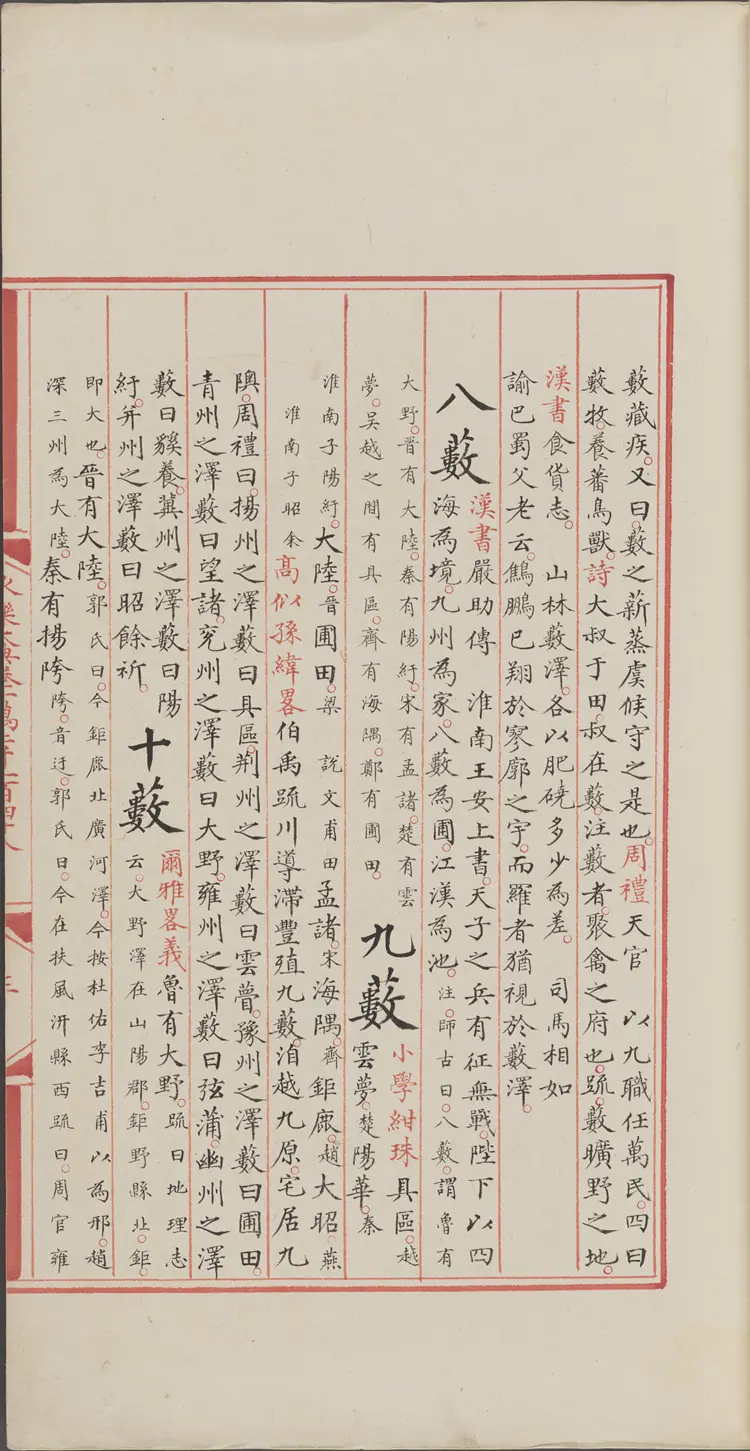 藪藏疾。又曰。藪之薪蒸虞候守之是也。周禮天官　以九職任萬民。四曰
藪牧。養蕃鳥獸。詩大叔于田。叔在藪。注藪者。聚禽之府也。䟽。藪曠野之地。
漢書食貨志。　山林藪澤。各以肥磽多少為差。　司馬相如
諭巴蜀父老云。鷦鵬已翔於寥廓之宇。而羅者猶視於藪澤。
八藪
漢書嚴助傳　淮南王安上書。天子之兵有征無戰。陛下以四
海為境。九州為家。八藪為囿。江漢為池。注。師古曰。八藪。謂魯有
大野。晉有大陸。秦有陽紆。宋有孟諸。楚有雲
夢。吳越之間有具區。齊有海隅。鄭有圃田。
九藪
小學紺珠具區。越
雲夢。楚陽華。秦
淮南子陽紆。大陸。晉圃田。梁　說文甫田孟諸。宋海隅。齊鉅鹿。趙大昭。燕
淮南子昭余高似孫緯畧伯禹䟽川導滯豐殖九藪。洎越九原。宅居九
隩。周禮曰。揚州之澤藪曰具區。荊州之澤藪曰雲瞢。豫州之澤藪曰圃田。
青州之澤藪曰望諸。兖州之澤藪曰大野。雍州之澤藪曰弦蒲。幽州之澤
藪曰貕養。冀州之澤藪曰陽
紆。并州之澤藪曰昭餘祈。
十藪
爾雅畧義魯有大野。䟽曰地理志
云。大野澤在山陽郡。鉅野縣北。鉅
即大也。晉有大陸。郭氏曰。今鉅鹿北廣河澤。今按杜佑李吉甫以為邢。趙
深三州為大陸。秦有揚陓。陓。音迂。郭氏曰。今在扶風汧縣西䟽曰。周官雍